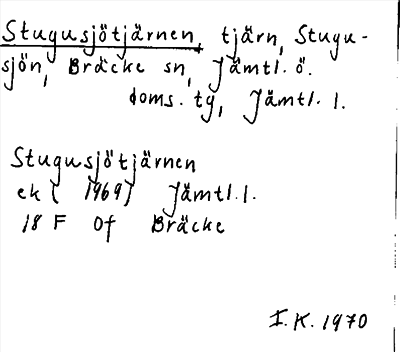 Stugusjötjärnen, tjärn, Stugu-
sjön, Bräcke sn, Jämtl. ö.
doms. tg, Jämtl. l.
Stugusjötjärnen
ek ( 1969) Jämtl. l.
18 F Of Bräcke
I. K. 1970